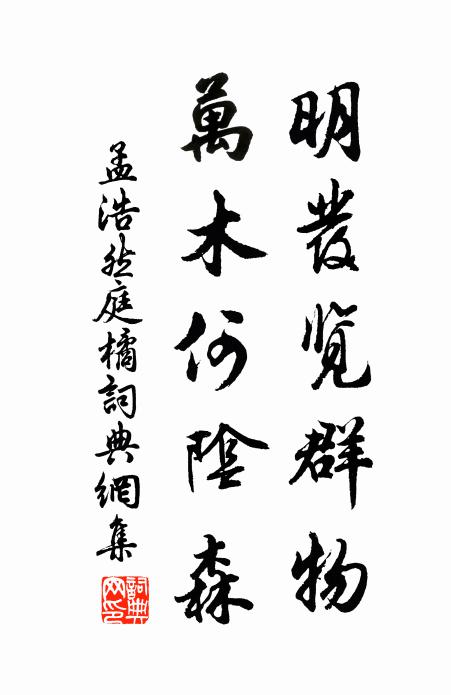 明發覽群物
萬木何陰森
孟浩然庭橘詞典網集
詞典網印